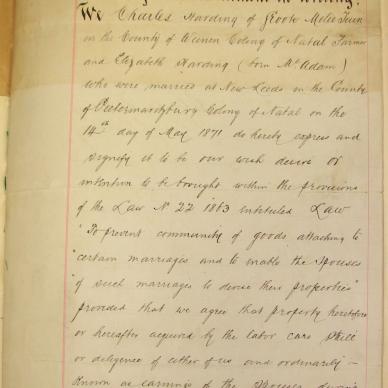 in writing.
We Charles Harding of Groote Melie Tuin
in the County of Weenen Colony of Natal Farmer
and Elizabeth Harding (born McAdam)
who were married at New Leeds in the County
of Pietermaritzburg Colony of Natal on the
14th day of May 1871 do hereby express and
signify it to be our wish desire or
intention to be brought within the provisions
of the Law No 22 1863 intituled Law
"To prevent community of goods attaching to
"certain marriages and to enable the Spouses
"of such marriages to devise their properties"
provided that we agree that property heretofore
or hereafter acquired by the labor care skill
or diligence of either of us and ordinarily -
known as earnings of the Spouses during